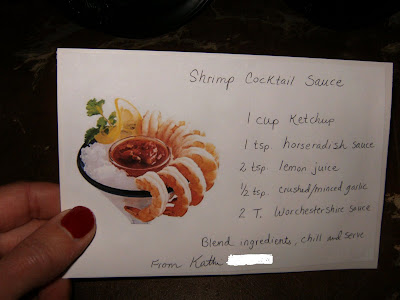 Shrimp Cocktail Sauce
1 cup Ketchup
1 tsp. horseradish sauce
2 tsp. lemon juice
1/2 tsp. crushed/minced garlic
2 T. Worchestershire sauce
Blend ingredients, chill and serve
From Kathi